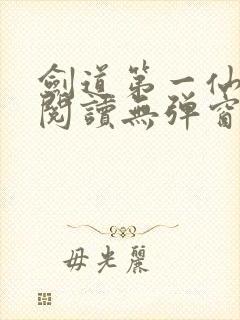 劍道第一仙
閱讀無彈窗
毋光麗